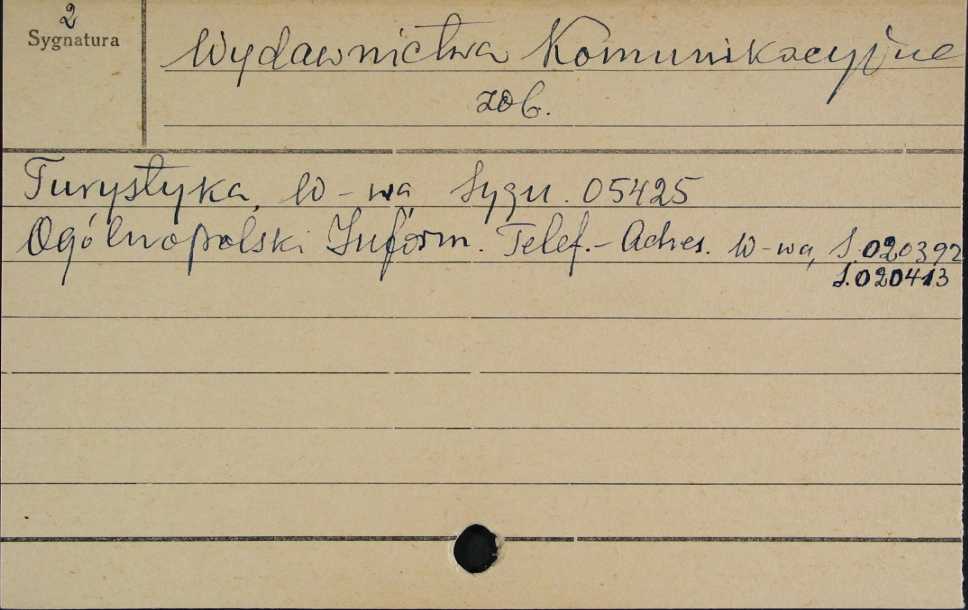 2
Sygnatura
Wydawnictwa Komunikacyjne
zob.
Turystyka, W-wa Sygn. 05425
Ogólnopolski Inform. Telef.-Adres. W-wa, S.020392
S.020413